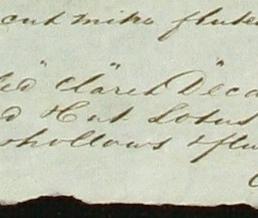 cut mitre flute
" " "
ed Claret Deca
d Hut Lotus
hollows & flu